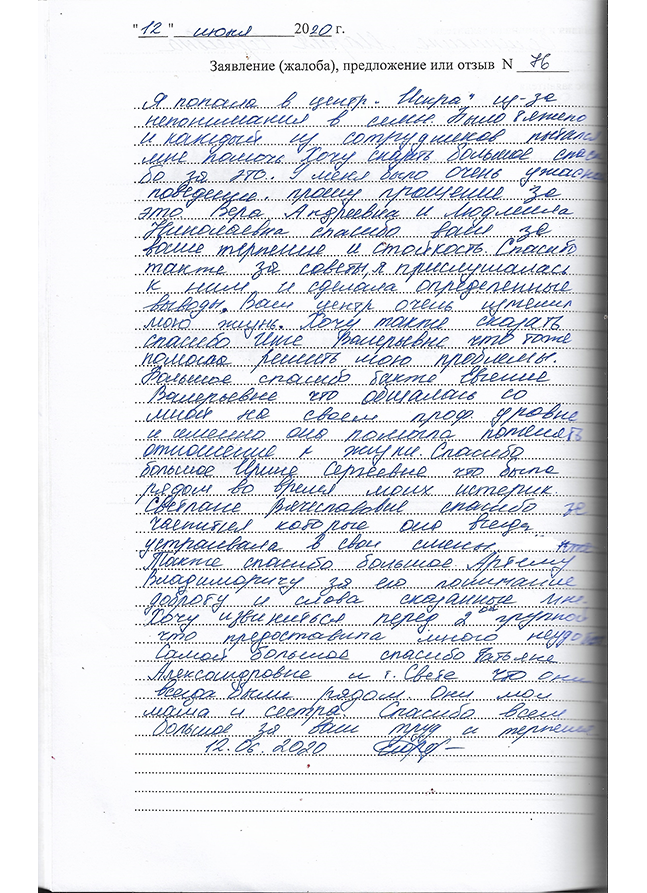 "12" июня 2020 г.
Заявление (жалоба), предложение или отзыв N 76
Я попала в центр "Искра" из-за
непонимания в семье. Было тяжело
и каждый из сотрудников пытался
мне помочь. Хочу сказать большое спаси
бо за это. У меня было очень ужасное
поведение. прошу прощение за
это Вера Андреевна и Людмила
Николаевна спасибо вам за
ваше терпение и стойкость. Спасибо
также за советы, я прислушалась
к ним и сделала определенные
выводы. Ваш центр очень изменил
мою жизнь. Хочу также сказать
спасибо Инне Валерьевне что тоже
помогла решить мою проблемы.
Большое спасибо также Евгение
Валерьевне что общалась со
мной на своем проф. уровне
и именно она помогла поменять
отношение к жизни. Спасибо
большое Ирине Сергеевне что была
рядом во время моих истерик
Светлане Вячеславовне спасибо за
чаепития которые она всегда
устраивала в свои смены
Также спасибо большое Артёму
Владимировичу за его понимание
доброту и слова сказанные мне.
Хочу извиниться перед 2ой группой
что предоставила много неудобств
Самой большое спасибо Татьяне
Александровне и т. Свете что они
всегда были рядом. Они мои
мама и сестра Спасибо всем
большое за ваш труд и терпение
12.06.2020